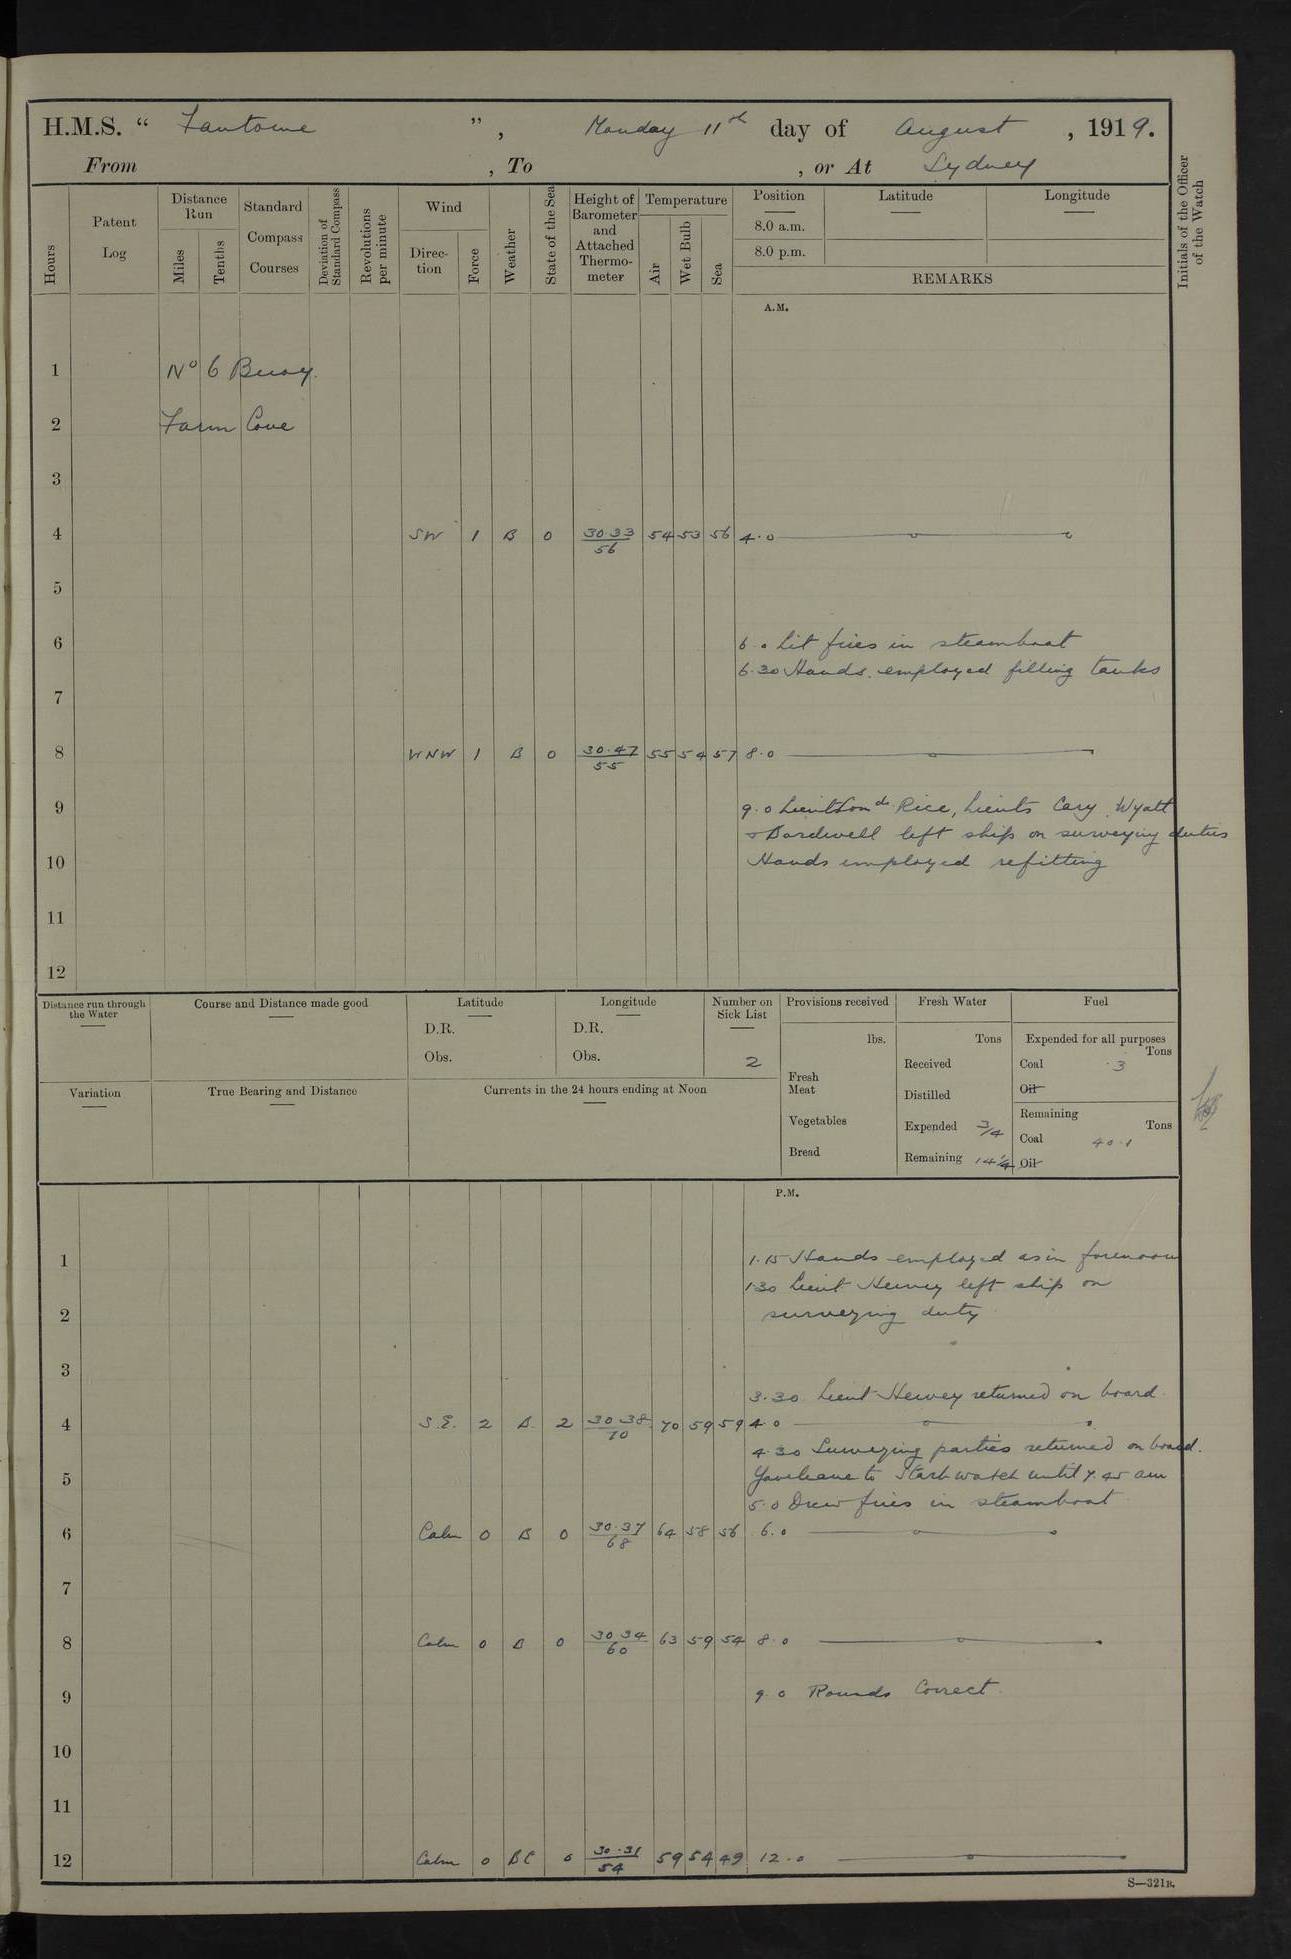 H.M.S. “ Fantome ” , Monday 11th day of August , 1919.
From , To , or At Sydney
Hours
Patent Log
Distance Run
Miles
Tenths
Standard Compass Courses
Deviation of Standard Compass
Revolutions per minute
Wind
Direction
Force
Weather
State of the Sea
Height of Barometer and Attached Thermometer
Temperature
Air
Wet Bulb
Sea
Position
8.0 a.m.
8.0 p.m.
Latitude
Longitude
REMARKS
Initials of the Officer of the Watch
A.M.
1 No 6 Buoy.
2 Farm Cove
3
4 SW 1 B 0 30.33 56 54 53 56 4.0
5
6 6.0 Lit fires in steamboat
6.30 Hands employed filling tanks
7
8 WNW 1 B 0 30.47 55 55 54 57 8.0
9 9.0 Lieut Comdr Rice, Lieuts Cary Wyatt
& Bardwell left ship on surveying duties
10 Hands employed refitting
11
12
Distance run through the Water
Course and Distance made good
Latitude
D.R.
Obs.
Longitude
D.R.
Obs.
Number on Sick List
2
Provisions received
lbs.
Fresh Meat
Vegetables
Bread
Fresh Water
Tons
Received
Distilled
Expended 3/4
Remaining 14 1/4
Fuel
Expended for all purposes
Tons
Coal .3
Oil
Remaining
Tons
Coal 40.1
Oil
Variation
True Bearing and Distance
Currents in the 24 hours ending at Noon
P.M.
1 1.15 Hands employed as in forenoon
1.30 Lieut Hewey left ship on
2 surveying duty
3
3.30 Lieut Hewey returned on board.
4 S.E. 2 B. 2 30 38 70 70 59 59 4.0
4.30 Surveying parties returned on board.
5 Gave leave to Starb watch until 7.45 am
5.0 Drew fires in steamboat
6 Calm 0 B 0 30.37 68 64 58 56 6.0
7
8 Calm 0 B 0 30 34 60 63 59 54 8.0
9 9.0 Rounds Correct.
10
11
12 Calm 0 BC 0 30.31 54 59 54 49 12.0
S—321B.